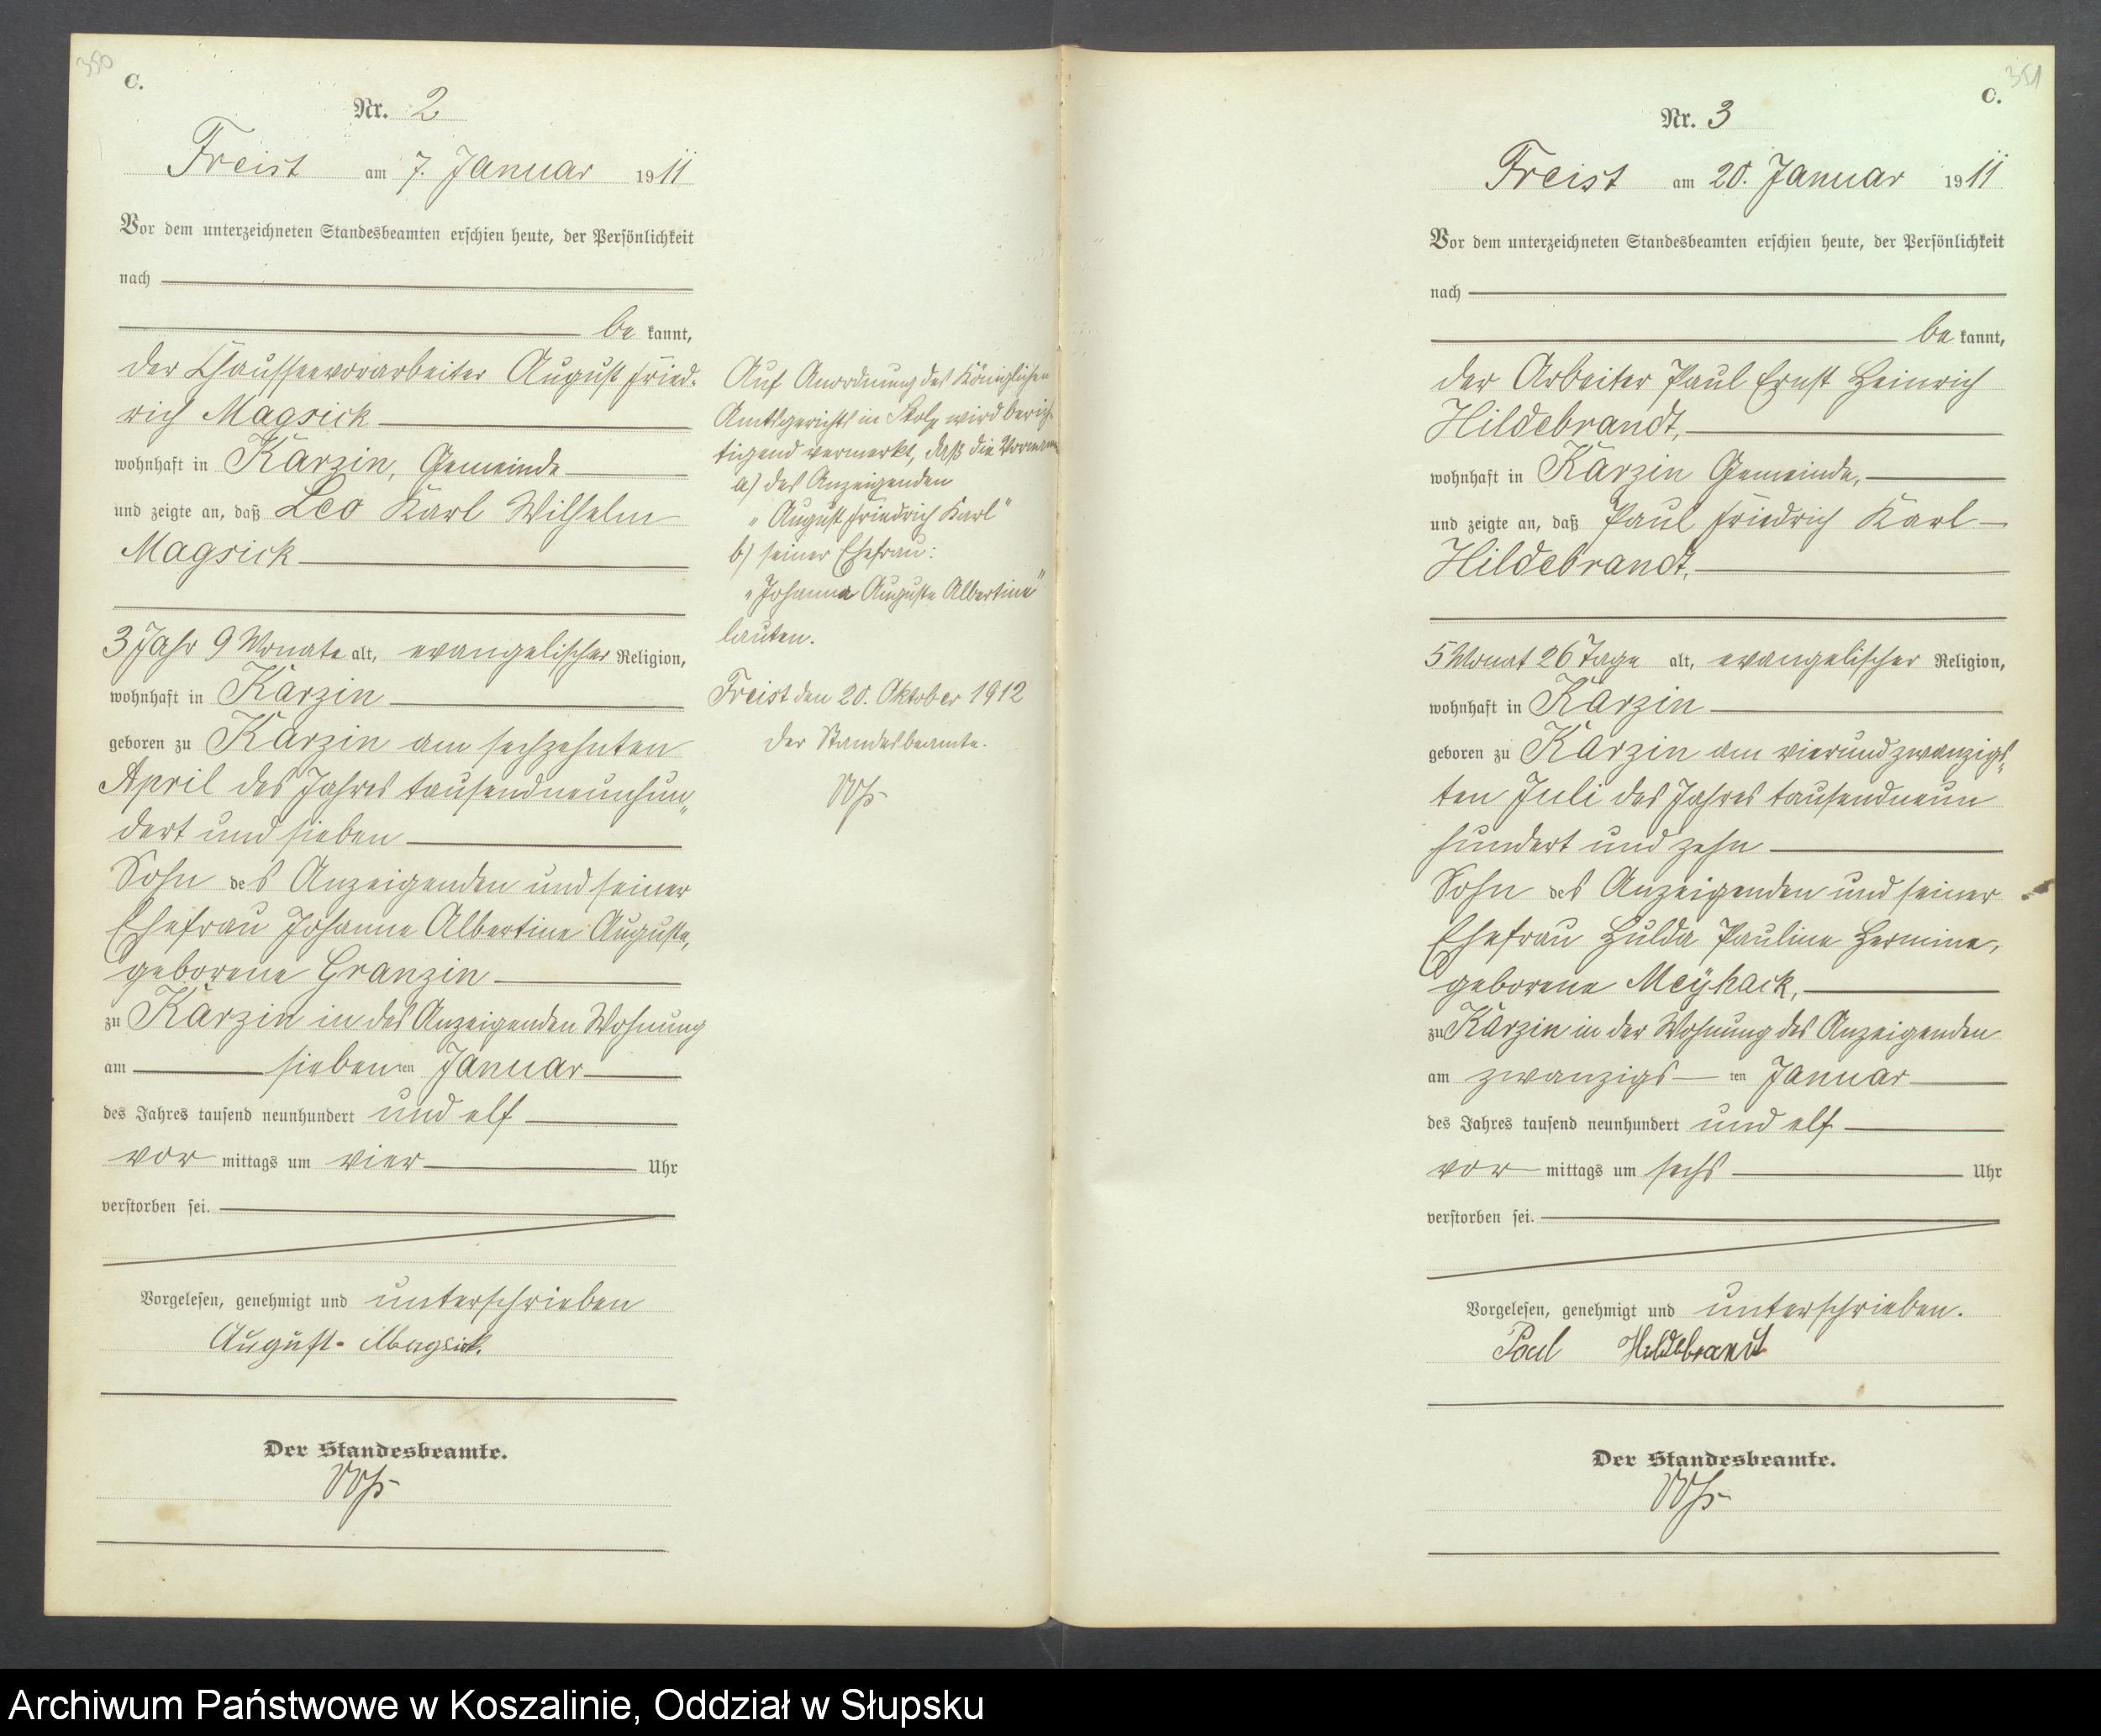 350
C.
Nr. 2
Freist am 7. Januar 1911
Vor dem unterzeichneten Standesbeamten erschien heute, der Persönlichkeit
nach
be kannt,
der Chausseevorarbeiter August Fried-
rich Magsick
wohnhaft in Karzin, Gemeinde
und zeigte an, daß Leo Karl Wilhelm
Magsick
3 Jahr 9 Monate alt, evangelischer Religion,
wohnhaft in Karzin
geboren zu Karzin am sechzehnten
April des Jahres tausendneunhun„
dert und sieben
Sohn des Anzeigenden und seiner
Ehefrau Johanne Albertine Auguste,
geborene Granzin
zu Karzin in des Anzeigenden Wohnung
am siebenten Januar
des Jahres tausend neunhundert und elf
vor mittags um vier Uhr
verstorben sei.
Vorgelesen, genehmigt und unterschrieben
August Magsick.
Der Standesbeamte.
Auf Anordnung des Königlichen
Amtsgerichts in Stolp wird berich-
tigend vermerkt, daß die Vornamen
a) des Anzeigenden
„August Friedrich Karl"
b) seiner Ehefrau:
„Johanna Auguste Albertine"
lauten.
Freist den 20. Oktober 1912
Der Standesbeamte.
351
C.
Nr. 3
Freist am 20. Januar 1911
Vor dem unterzeichneten Standesbeamten erschien heute, der Persönlichkeit
nach
be kannt,
der Arbeiter Paul Ernst Heinrich
Hildebrandt,
wohnhaft in Karzin Gemeinde,
und zeigte an, daß Paul Friedrich Karl
Hildebrandt,
5 Monat 26 Tage alt, evangelischer Religion,
wohnhaft in Karzin
geboren zu Karzin am vierundzwanzigs„
ten Juli des Jahres tausendneun
hundert und zehn
Sohn des Anzeigenden und seiner
Ehefrau Hulda Pauline Hermine,
geborene Meyhack,
zu Karzin in der Wohnung des Anzeigenden
am zwanzigs ten Januar
des Jahres tausend neunhundert und elf
vor mittags um sechs Uhr
verstorben sei.
Vorgelesen, genehmigt und unterschrieben.
Paul Hildebrandt
Der Standesbeamte.
Archiwum Państwowe w Koszalinie, Oddział w Słupsku